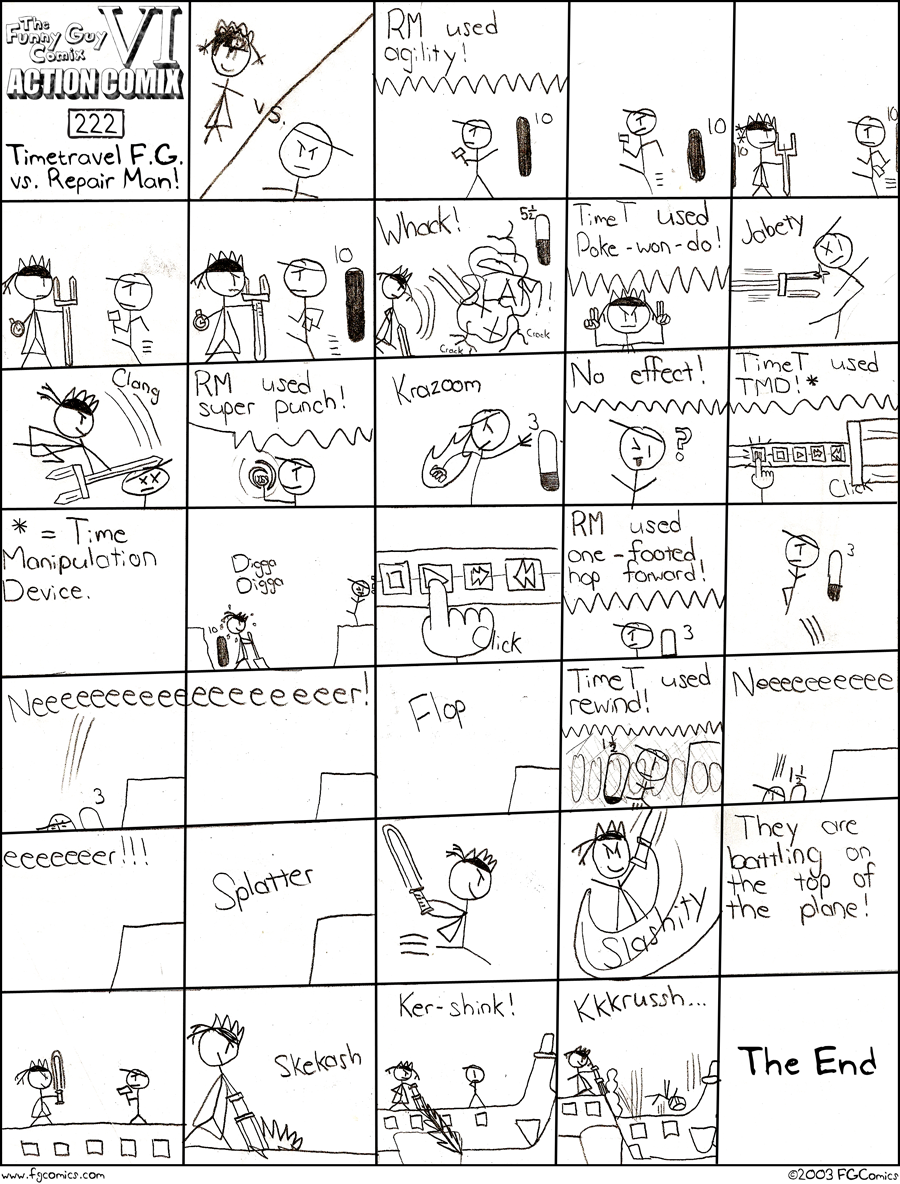 The
Funny Guy
Comix
VI
ACTION COMIX
222
Timetravel F.G.
vs. Repair Man!
vs.
RM used
agility!
10
10
10
10
10
Whack!
5½
Crack
Crack
TimeT used
Poke-won-do!
Jabety
Clang
RM used
super punch!
Krazoom
3
No effect!
?
TimeT used
TMD!*
Click
* = Time
Manipulation
Device.
Digga
Digga
10
Click
RM used
one-footed
hop forward!
3
3
Neeeeeeeeeeeeeeeeeeer!
3
Flop
TimeT used
rewind!
1½
Neeeeeeeeee
1½
eeeeeeeer!!!
Splatter
Slashity
They are
battling on
the top of
the plane!
Skekash
Ker-shink!
Kkkrussh...
The End
www.fgcomics.com
©2003 FGComics